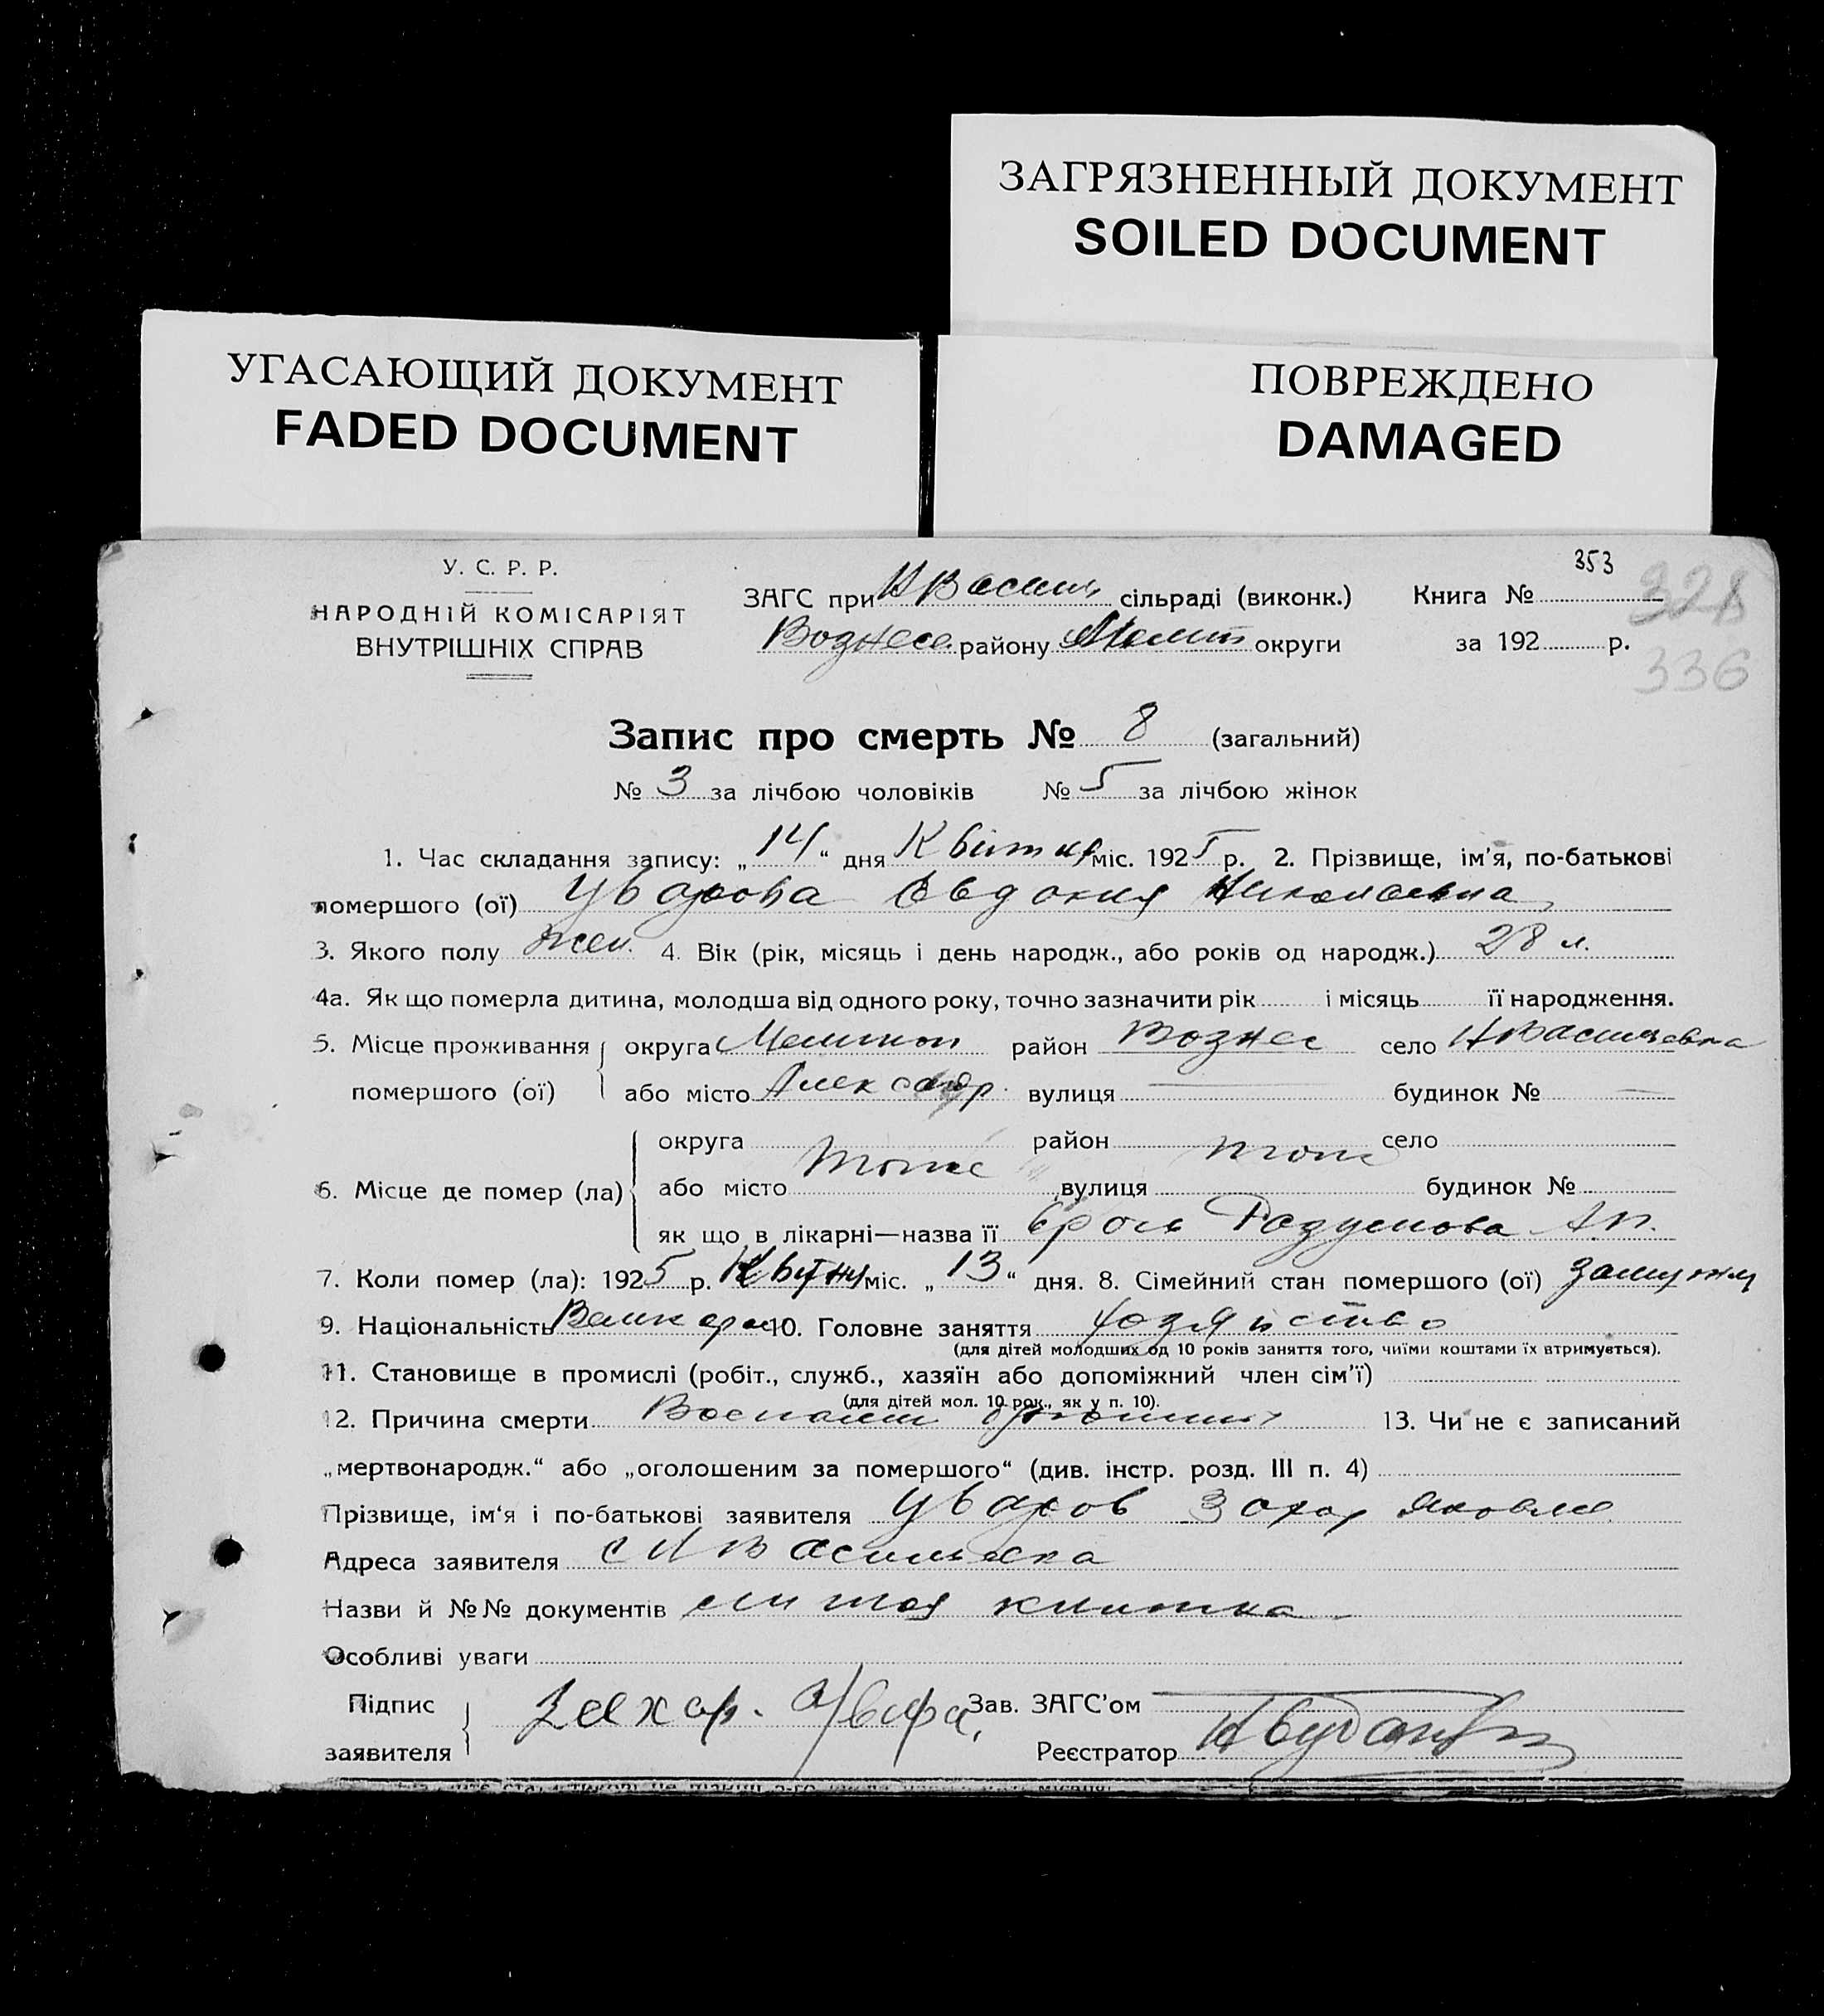 ЗАГРЯЗНЕННЫЙ ДОКУМЕНТ
SOILED DOCUMENT
УГАСАЮЩИЙ ДОКУМЕНТ
FADED DOCUMENT
ПОВРЕЖДЕНО
DAMAGED
353
328
336
У. С. Р. Р.
НАРОДНІЙ КОМІСАРІЯТ
ВНУТРІШНІХ СПРАВ
ЗАГС при Н Васил сільраді (виконк.) Книга №
Вознесе району Мелит округи за 192 р.
Запис про смерть № 8 (загальний)
№ 3 за лічбою чоловіків № 5 за лічбою жінок
1. Час складання запису: „14“ дня Квітня міс. 1925 р. 2. Прізвище, ім'я, по-батькові
помершого (ої) Уварова Евдокия Николаевна
3. Якого полу жен. 4. Вік (рік, місяць і день народж., або років од народж.) 28 л.
4а. Як що померла дитина, молодша від одного року, точно зазначити рік і місяць її народження.
5. Місце проживання округа Мелитоп район Вознес село Н Васильевка
помершого (ої) або місто Александр. вулиця — будинок № —
округа район село
6. Місце де помер (ла) або місто тоже вулиця тож будинок №
як що в лікарні—назва її
7. Коли помер (ла): 1925 р. Квітня міс. „13“ дня. 8. Сімейний стан помершого (ої) замужня
9. Національність Великорос 10. Головне заняття хозяйство
(для дітей молодших од 10 років заняття того, чиїми коштами їх втримується).
11. Становище в промислі (робіт., служб., хазяїн або допоміжний член сім'ї)
(для дітей мол. 10 рок., як у п. 10).
12. Причина смерти Воспален 13. Чи не є записаний
„мертвонародж.“ або „оголошеним за помершого“ (див. інстр. розд. III п. 4)
Прізвище, ім'я і по-батькові заявителя Уваров Захар Яковле
Адреса заявителя с Н Васильевка
Назви й №№ документів книжка
Особливі уваги
Підпис Захар. Увара Зав. ЗАГС'ом
заявителя Реєстратор